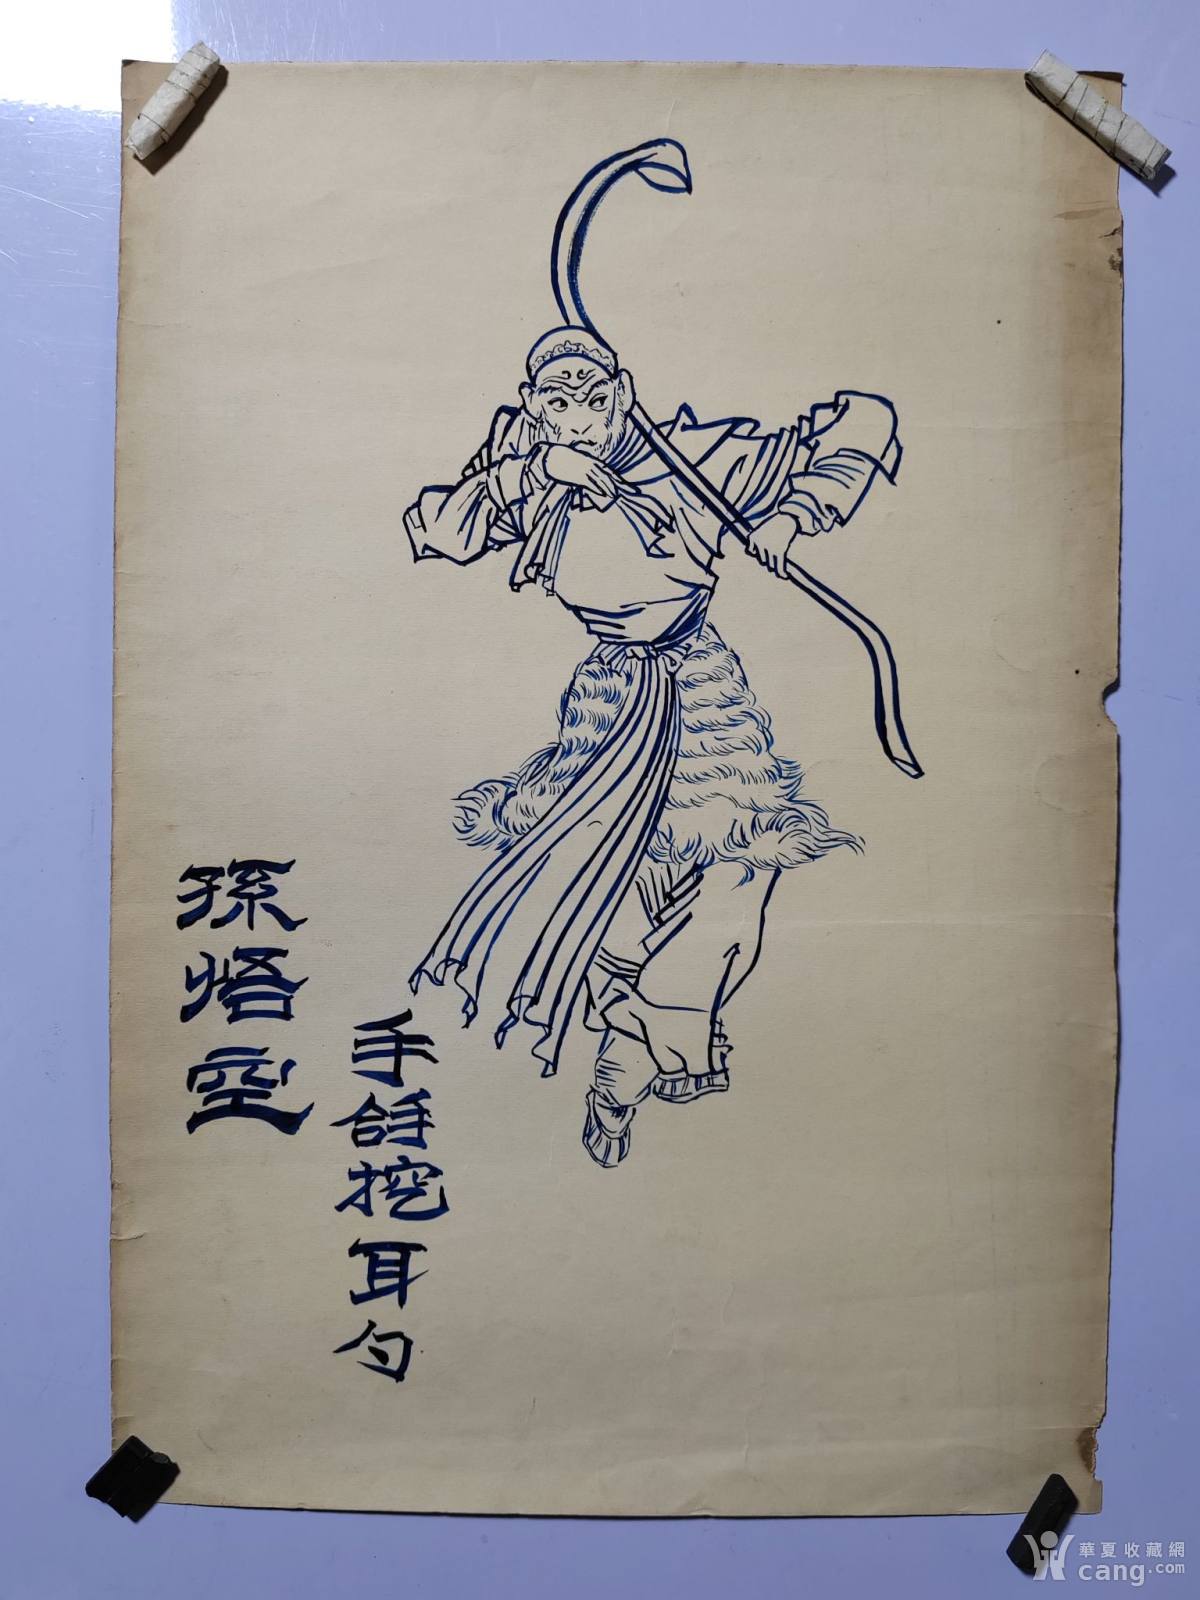 孫悟空
手䶎挖耳勺
華夏收藏網
cang.com